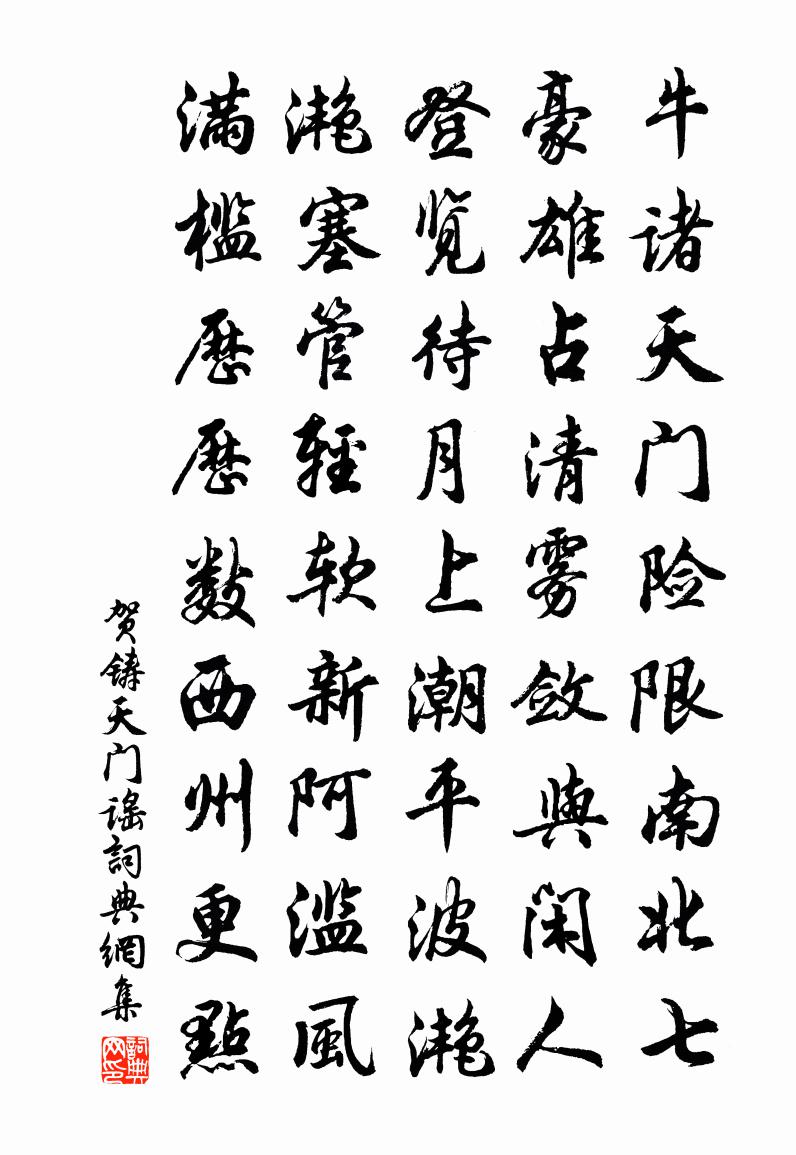 牛诸天门险限南北七
豪雄占清雾敛與闲人
登览待月上潮平波滟
滟塞管輕软新阿滥風
满槛歷歷数西州更點
贺铸天门谣詞典網集
詞典网印